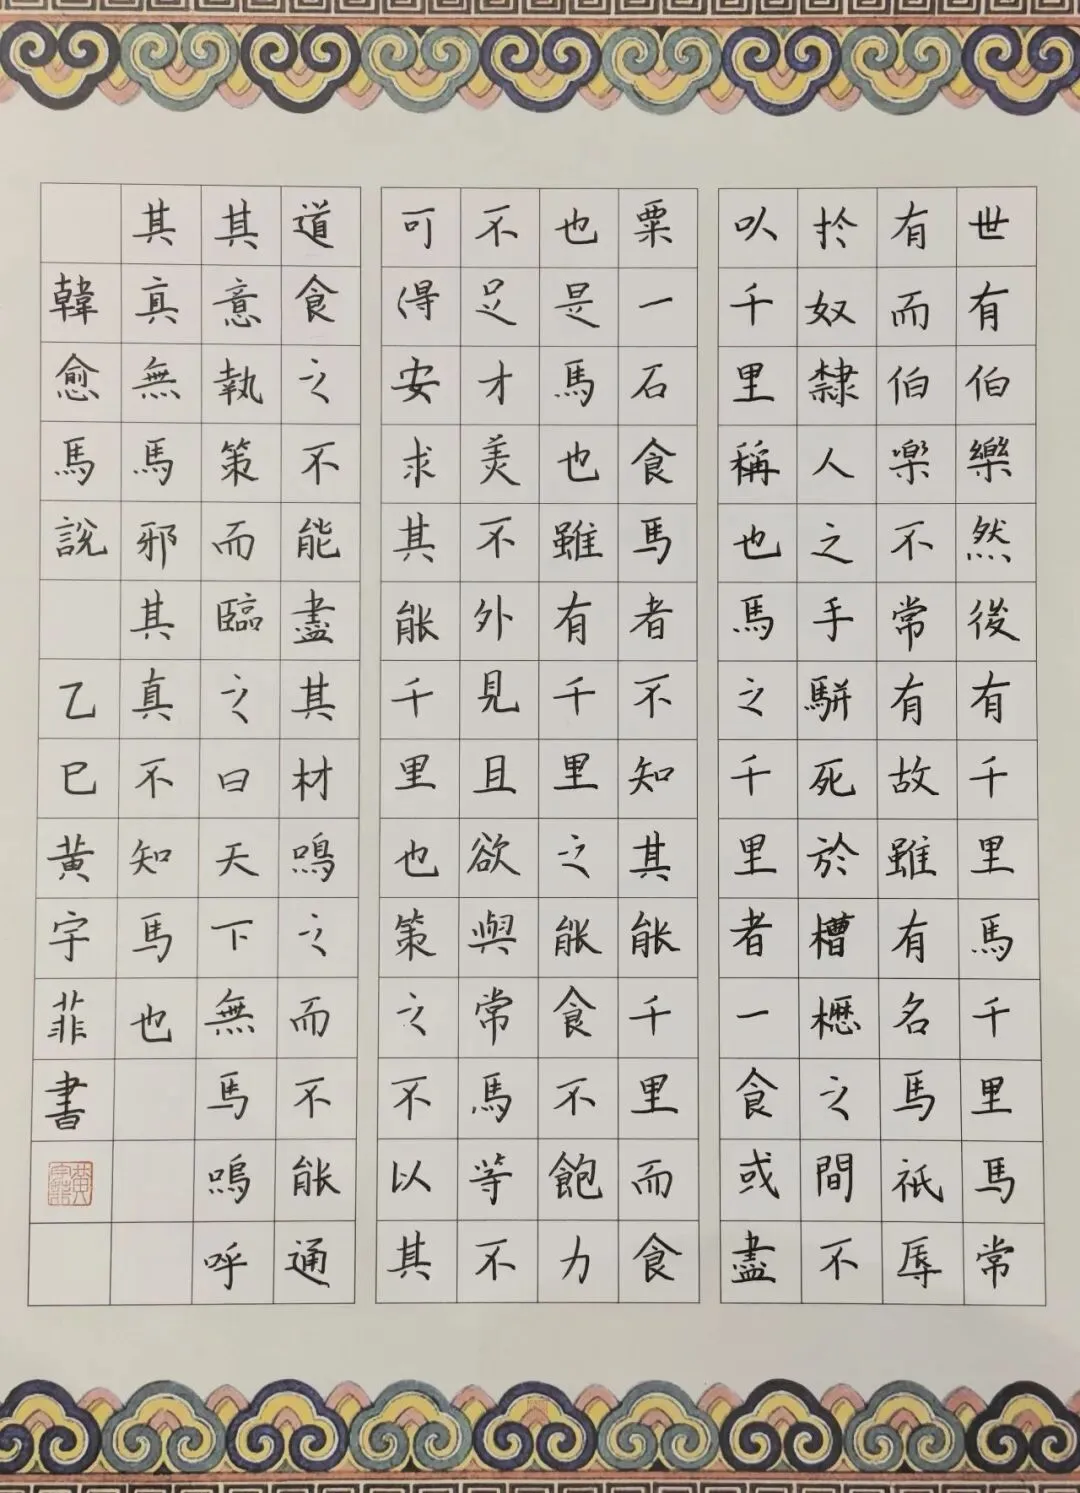 世有伯樂然後有千里馬千里馬常
有而伯楽不常有故雖有名馬祇辱
扵奴隸人之手駢死於槽櫪之間不
以千里稱也馬之千里者一食或盡
粟一石食馬者不知其能千里而食
也是馬也雖有千里之能食不飽力
不足才美不外見且欲與常馬等不
可得安求其能千里也策之不以其
道食之不能盡其材鳴之而不能通
其意執策而臨之曰天下無馬嗚呼
其真無馬邪其真不知馬也
韓愈馬說 乙巳黄宇菲書